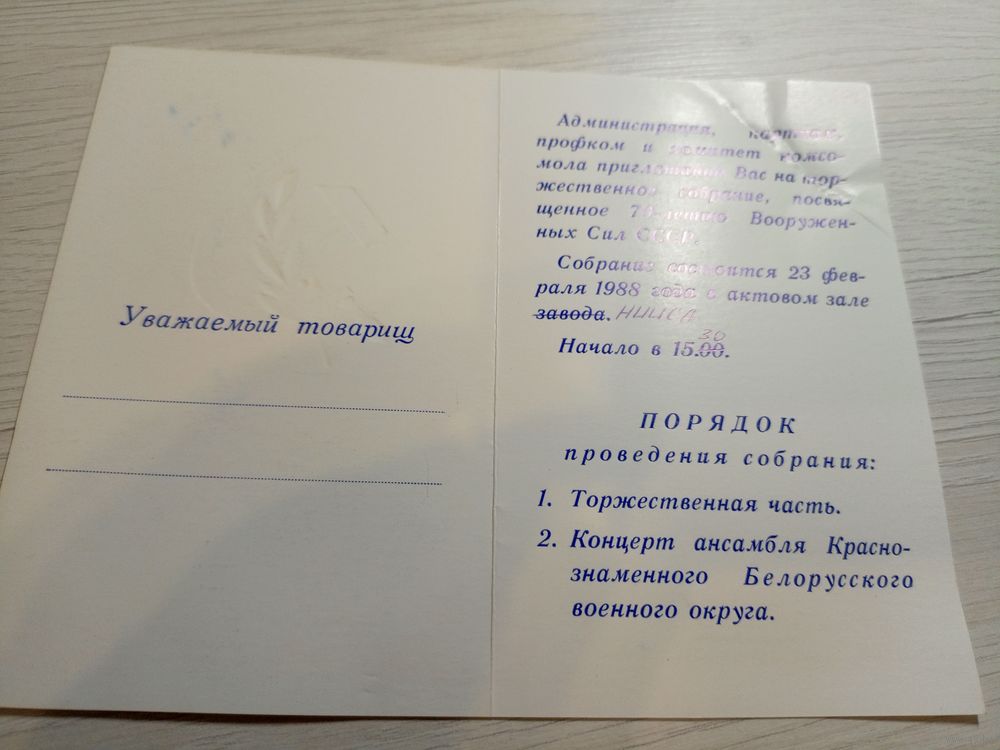 Уважаемый товарищ
Администрация, партком,
профком и комитет комсо-
мола приглашают Вас на тор-
жественное собрание, посвя-
щенное 70-летию Вооружен-
ных Сил СССР.
Собрание состоится 23 фев-
раля 1988 года в актовом зале
завода. НИИСА
30
Начало в 15.00.
ПОРЯДОК
проведения собрания:
1. Торжественная часть.
2. Концерт ансамбля Красно-
знаменного Белорусского
военного округа.